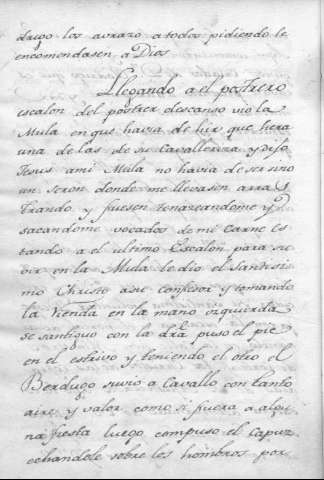 dugo los avrazo a todos pidiendo le
encomendasen a Dios
Llegando a el postrero
escalon del postrer descanso vio la
Mula en que havia de hir que hera
una de las de su Cavalleriza y dijo
Jesus a mi Mula no havia de ser sino
un seron donde me llevasen arras
trando y fuesen tenazeandome y
sacandome vocados de mi carne es
tando a el ultimo Escalon para su
vir en la Mula le dio el Santissi
mo Christo a su confesor y tomando
la rienda en la mano izquierda
se santiguo con la dra. puso el pie
en el estrivo y teniendo el otro el
Berdugo suvio a Cavallo con tanto
aire y valor como si fuera a algu
na fiesta luego compuso el Capuz
echandole sobre los hombros por